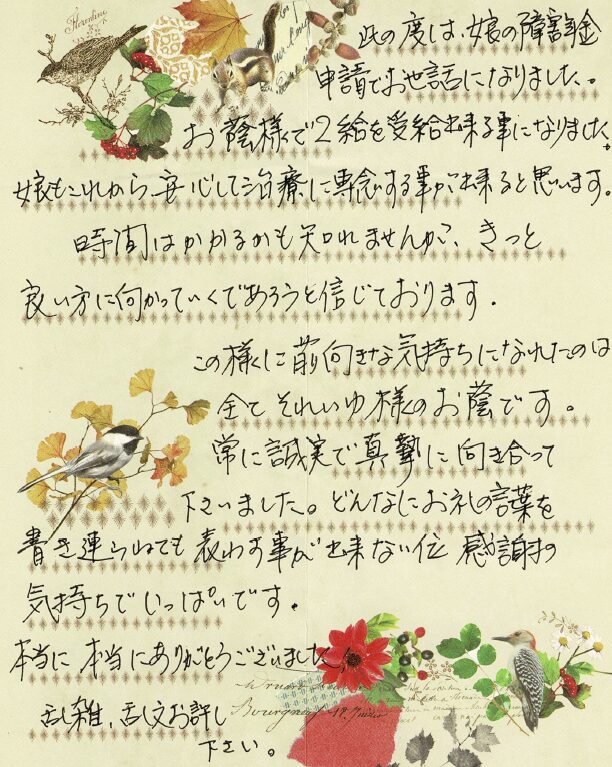 此の度は、娘の障害年金
申請でお世話になりました。
お蔭様で2給を受給出来る事になりました。
娘もこれから、安心して治療に専念する事が出来ると思います。
時間はかかるかも知れませんが、きっと
良い方に向かっていくであろうと信じております。
この様に前向きな気持ちになれたのは
全て それいゆ様のお蔭です。
常に誠実で真摯に向き合って
下さいました。どんなにお礼の言葉を
書き連らねても 表わす事が出来ない位 感謝の
気持ちでいっぱいです。
本当に 本当にありがとうございました。
乱雑、乱文お許し
下さい。